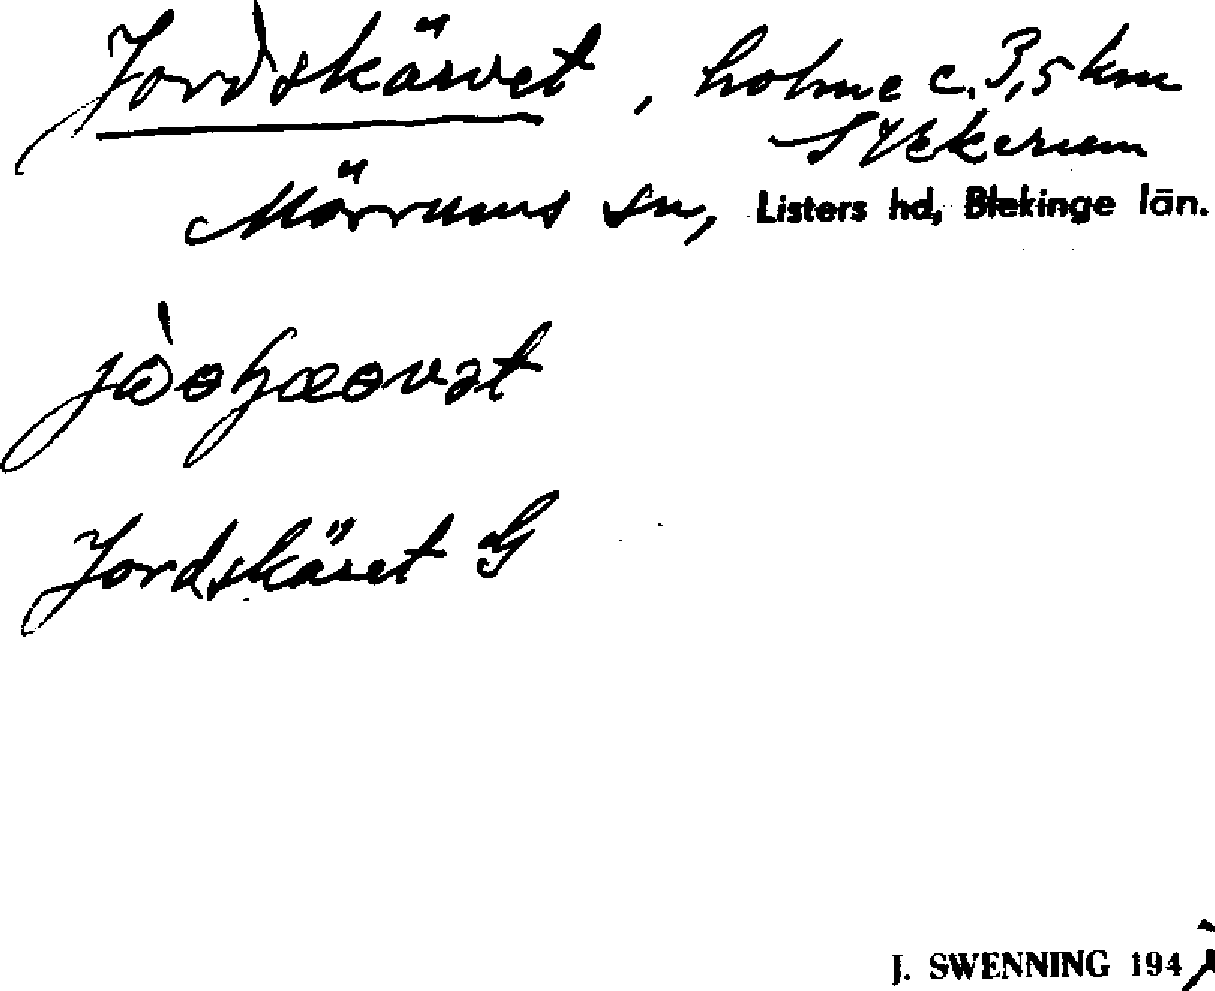 Jordskärvet, holme c. 3,5 km
S Vekerum
Mörrums sn, Listers hd, Blekinge län.
Jordskäret G
J. SWENNING 194